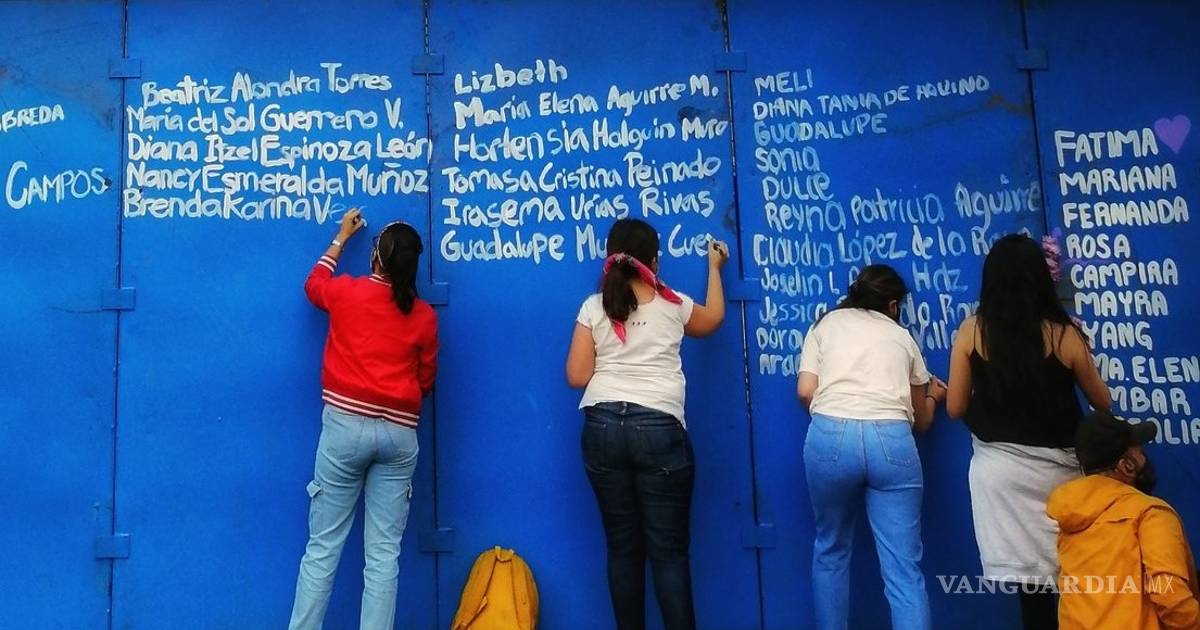 BREDA
CAMPOS
Beatriz Alondra Torres
Maria del Sol Guerrero V.
Diana Itzel Espinoza León
Nancy Esmeralda Muñoz
Brenda Karina
Lizbeth
María Elena Aguirre M.
Hortensia Holguin
Tomasa Cristina Peinado
Irasema Urias Rivas
Guadalupe
MELI
DIANA TANIA DE AQUINO
GUADALUPE
SONIA
DULCE
Reyna Patricia Aguirre
Claudia López de la
Joselin Hdz
Jessica
FATIMA
MARIANA
FERNANDA
ROSA
CAMPIRA
MAYRA
YANG
MA. ELEN
MBAR
VANGUARDIA MX